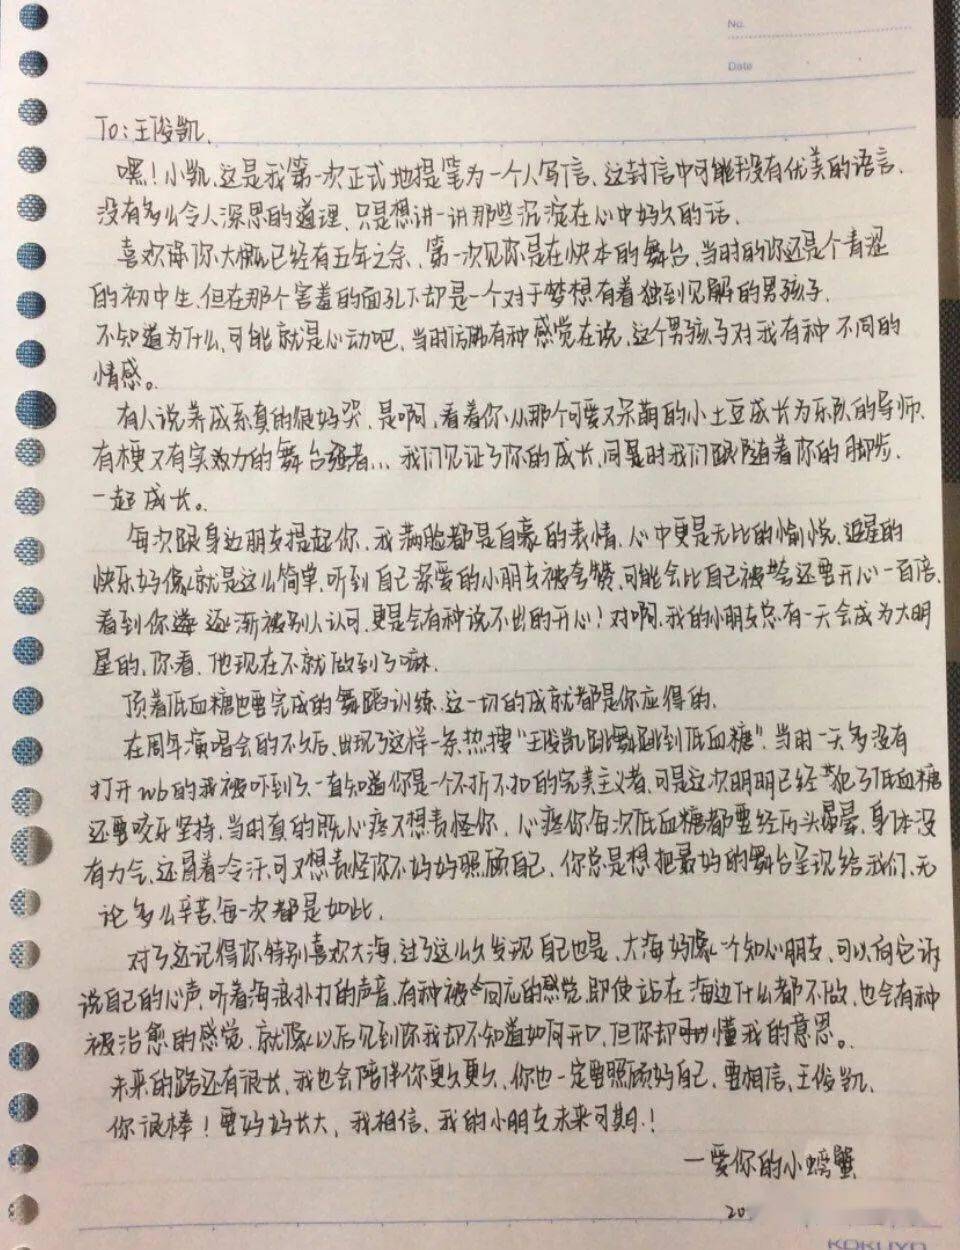 No.
Date
To:王俊凯.
嘿！小凯.这是我第一次正式地提笔为一个人写信.这封信中可能我没有优美的语言.
没有多么令人深思的道理.只是想讲一讲那些沉淀在心中好久的话.
喜欢你大概已经有五年之余.第一次见你是在快本的舞台.当时的你还是个青涩
的初中生.但在那个害羞的面孔下却是一个对于梦想有着独到见解的男孩子.
不知道为什么.可能就是心动吧.当时仿佛有种感觉在说.这个男孩子对我有种不同的
情感。
有人说养成系真的很好哭.是啊.看着你从那个可爱又呆萌的小土豆成长为乐队的导师.
有梗又有实效力的舞台强者...我们见证了你的成长.同是时我们跟随着你的脚步.
一起成长。
每次跟身边朋友提起你.我满脸都是自豪的表情.心中更是无比的愉悦.追星的
快乐好像就是这么简单.听到自己深爱的小朋友被夸赞.可能会比自己被夸还要开心一百倍.
看到你逐渐被别人认可.更是会有种说不出的开心！对啊.我的小朋友总有一天会成为大明
星的.你看.他现在不就做到了嘛.
顶着低血糖也要完成的舞蹈训练.这一切的成就都是你应得的.
在周年演唱会的不久后.出现了这样一条热搜"王俊凯跳舞跳到低血糖".当时一天多没有
打开wb的我被吓到了.一直知道你是一个不折不扣的完美主义者.可是这次明明已经犯了低血糖
还要咬牙坚持.当时真的既心疼又想责怪你.心疼你每次低血糖都要经历头晕晕.身体没
有力气.还冒着冷汗.可又想责怪你不好好照顾自己.你总是想把最好的舞台呈现给我们.无
论多么辛苦.每一次都是如此.
对了还记得你特别喜欢大海.过了这么久发现自己也是.大海好像一个知心朋友.可以向它诉
说自己的心声.听着海浪扑打的声音.有种被回应的感觉.即使站在海边什么都不做.也会有种
被治愈的感觉.就像以后见到你我却不知道如何开口.但你却懂我的意思。
未来的路还有很长.我也会陪伴你更久更久.你也一定要照顾好自己.要相信.王俊凯.
你很棒！要好好长大.我相信.我的小朋友未来可期.！
—爱你的小螃蟹
20
KOKUYO